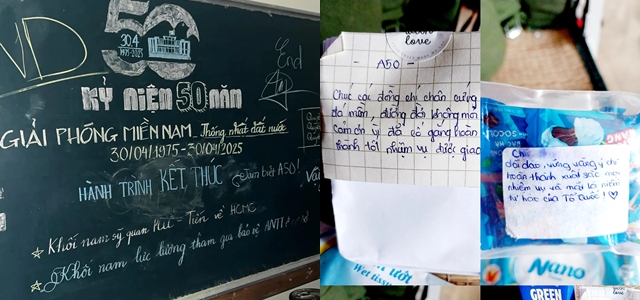 50
30.4
1975-2025
End
KỶ NIỆM 50 NĂM
GIẢI PHÓNG MIỀN NAM Thống nhất đất nước
30/04/1975 - 30/04/2025
HÀNH TRÌNH KẾT THÚC Tạm biệt A50!
★ Khối nam sỹ quan - Tiến về HCMC
★ Khối nam lực lượng tham gia bảo vệ
love
- A50 -
Chúc các đồng chí chân cứng
đá mềm, đường dài không mỏi
cảm ơn vì đã cố gắng hoàn
thành tốt nhiệm vụ được giao
Wet
Chúc
dồi dào, vững vàng ý chí
hoàn thành xuất sắc mọi
nhiệm vụ và mãi là niềm
tự hào của Tổ Quốc! ♡
Nano
GREEN